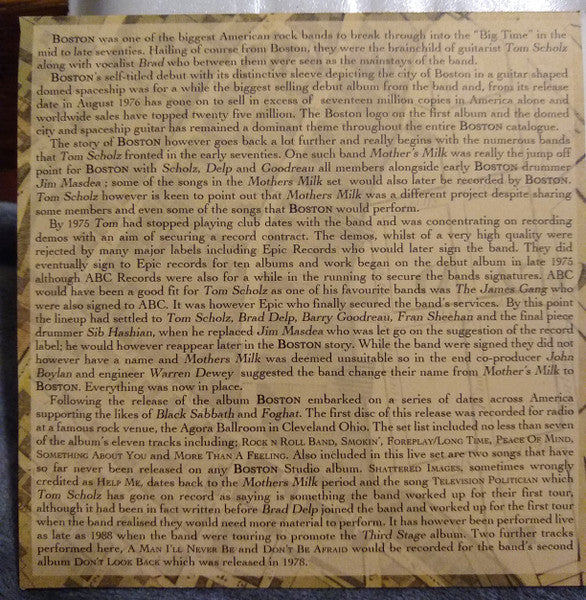 BOSTON was one of the biggest American rock bands to break through into the "Big Time" in the
mid to late seventies. Hailing of course from Boston, they were the brainchild of guitarist Tom Scholz
along with vocalist Brad who between them were seen as the mainstays of the band.
BOSTON's self-titled debut with its distinctive sleeve depicting the city of Boston in a guitar shaped
domed spaceship was for a while the biggest selling debut album from the band and, from its release
date in August 1976 has gone on to sell in excess of seventeen million copies in America alone and
worldwide sales have topped twenty five million. The Boston logo on the first album and the domed
city and spaceship guitar has remained a dominant theme throughout the entire BOSTON catalogue.
The story of BOSTON however goes back a lot further and really begins with the numerous bands
that Tom Scholz fronted in the early seventies. One such band Mother's Milk was really the jump off
point for BOSTON with Scholz, Delp and Goodreau all members alongside early BOSTON drummer
Jim Masdea ; some of the songs in the Mothers Milk set would also later be recorded by BOSTON.
Tom Scholz however is keen to point out that Mothers Milk was a different project despite sharing
some members and even some of the songs that BOSTON would perform.
By 1975 Tom had stopped playing club dates with the band and was concentrating on recording
demos with an aim of securing a record contract. The demos, whilst of a very high quality were
rejected by many major labels including Epic Records who would later sign the band. They did
eventually sign to Epic records for ten albums and work began on the debut album in late 1975
although ABC Records were also for a while in the running to secure the bands signatures. ABC
would have been a good fit for Tom Scholz as one of his favourite bands was The James Gang who
were also signed to ABC. It was however Epic who finally secured the band's services. By this point
the lineup had settled to Tom Scholz, Brad Delp, Barry Goodreau, Fran Sheehan and the final piece
drummer Sib Hashian, when he replaced Jim Masdea who was let go on the suggestion of the record
label; he would however reappear later in the BOSTON story. While the band were signed they did not
however have a name and Mothers Milk was deemed unsuitable so in the end co-producer John
Boylan and engineer Warren Dewey suggested the band change their name from Mother's Milk to
BOSTON. Everything was now in place.
Following the release of the album BOSTON embarked on a series of dates across America
supporting the likes of Black Sabbath and Foghat. The first disc of this release was recorded for radio
at a famous rock venue, the Agora Ballroom in Cleveland Ohio. The set list included no less than seven
of the album's eleven tracks including; ROCK N ROLL BAND, SMOKIN', FOREPLAY/LONG TIME, PEACE OF MIND,
SOMETHING ABOUT YOU and MORE THAN A FEELING. Also included in this live set are two songs that have
so far never been released on any BOSTON Studio album. SHATTERED IMAGES, sometimes wrongly
credited as HELP ME, dates back to the Mothers Milk period and the song TELEVISION POLITICIAN which
Tom Scholz has gone on record as saying is something the band worked up for their first tour,
although it had been in fact written before Brad Delp joined the band and worked up for the first tour
when the band realised they would need more material to perform. It has however been performed live
as late as 1988 when the band were touring to promote the Third Stage album. Two further tracks
performed here, A MAN I'LL NEVER BE and DON'T BE AFRAID would be recorded for the band's second
album DON'T LOOK BACK which was released in 1978.